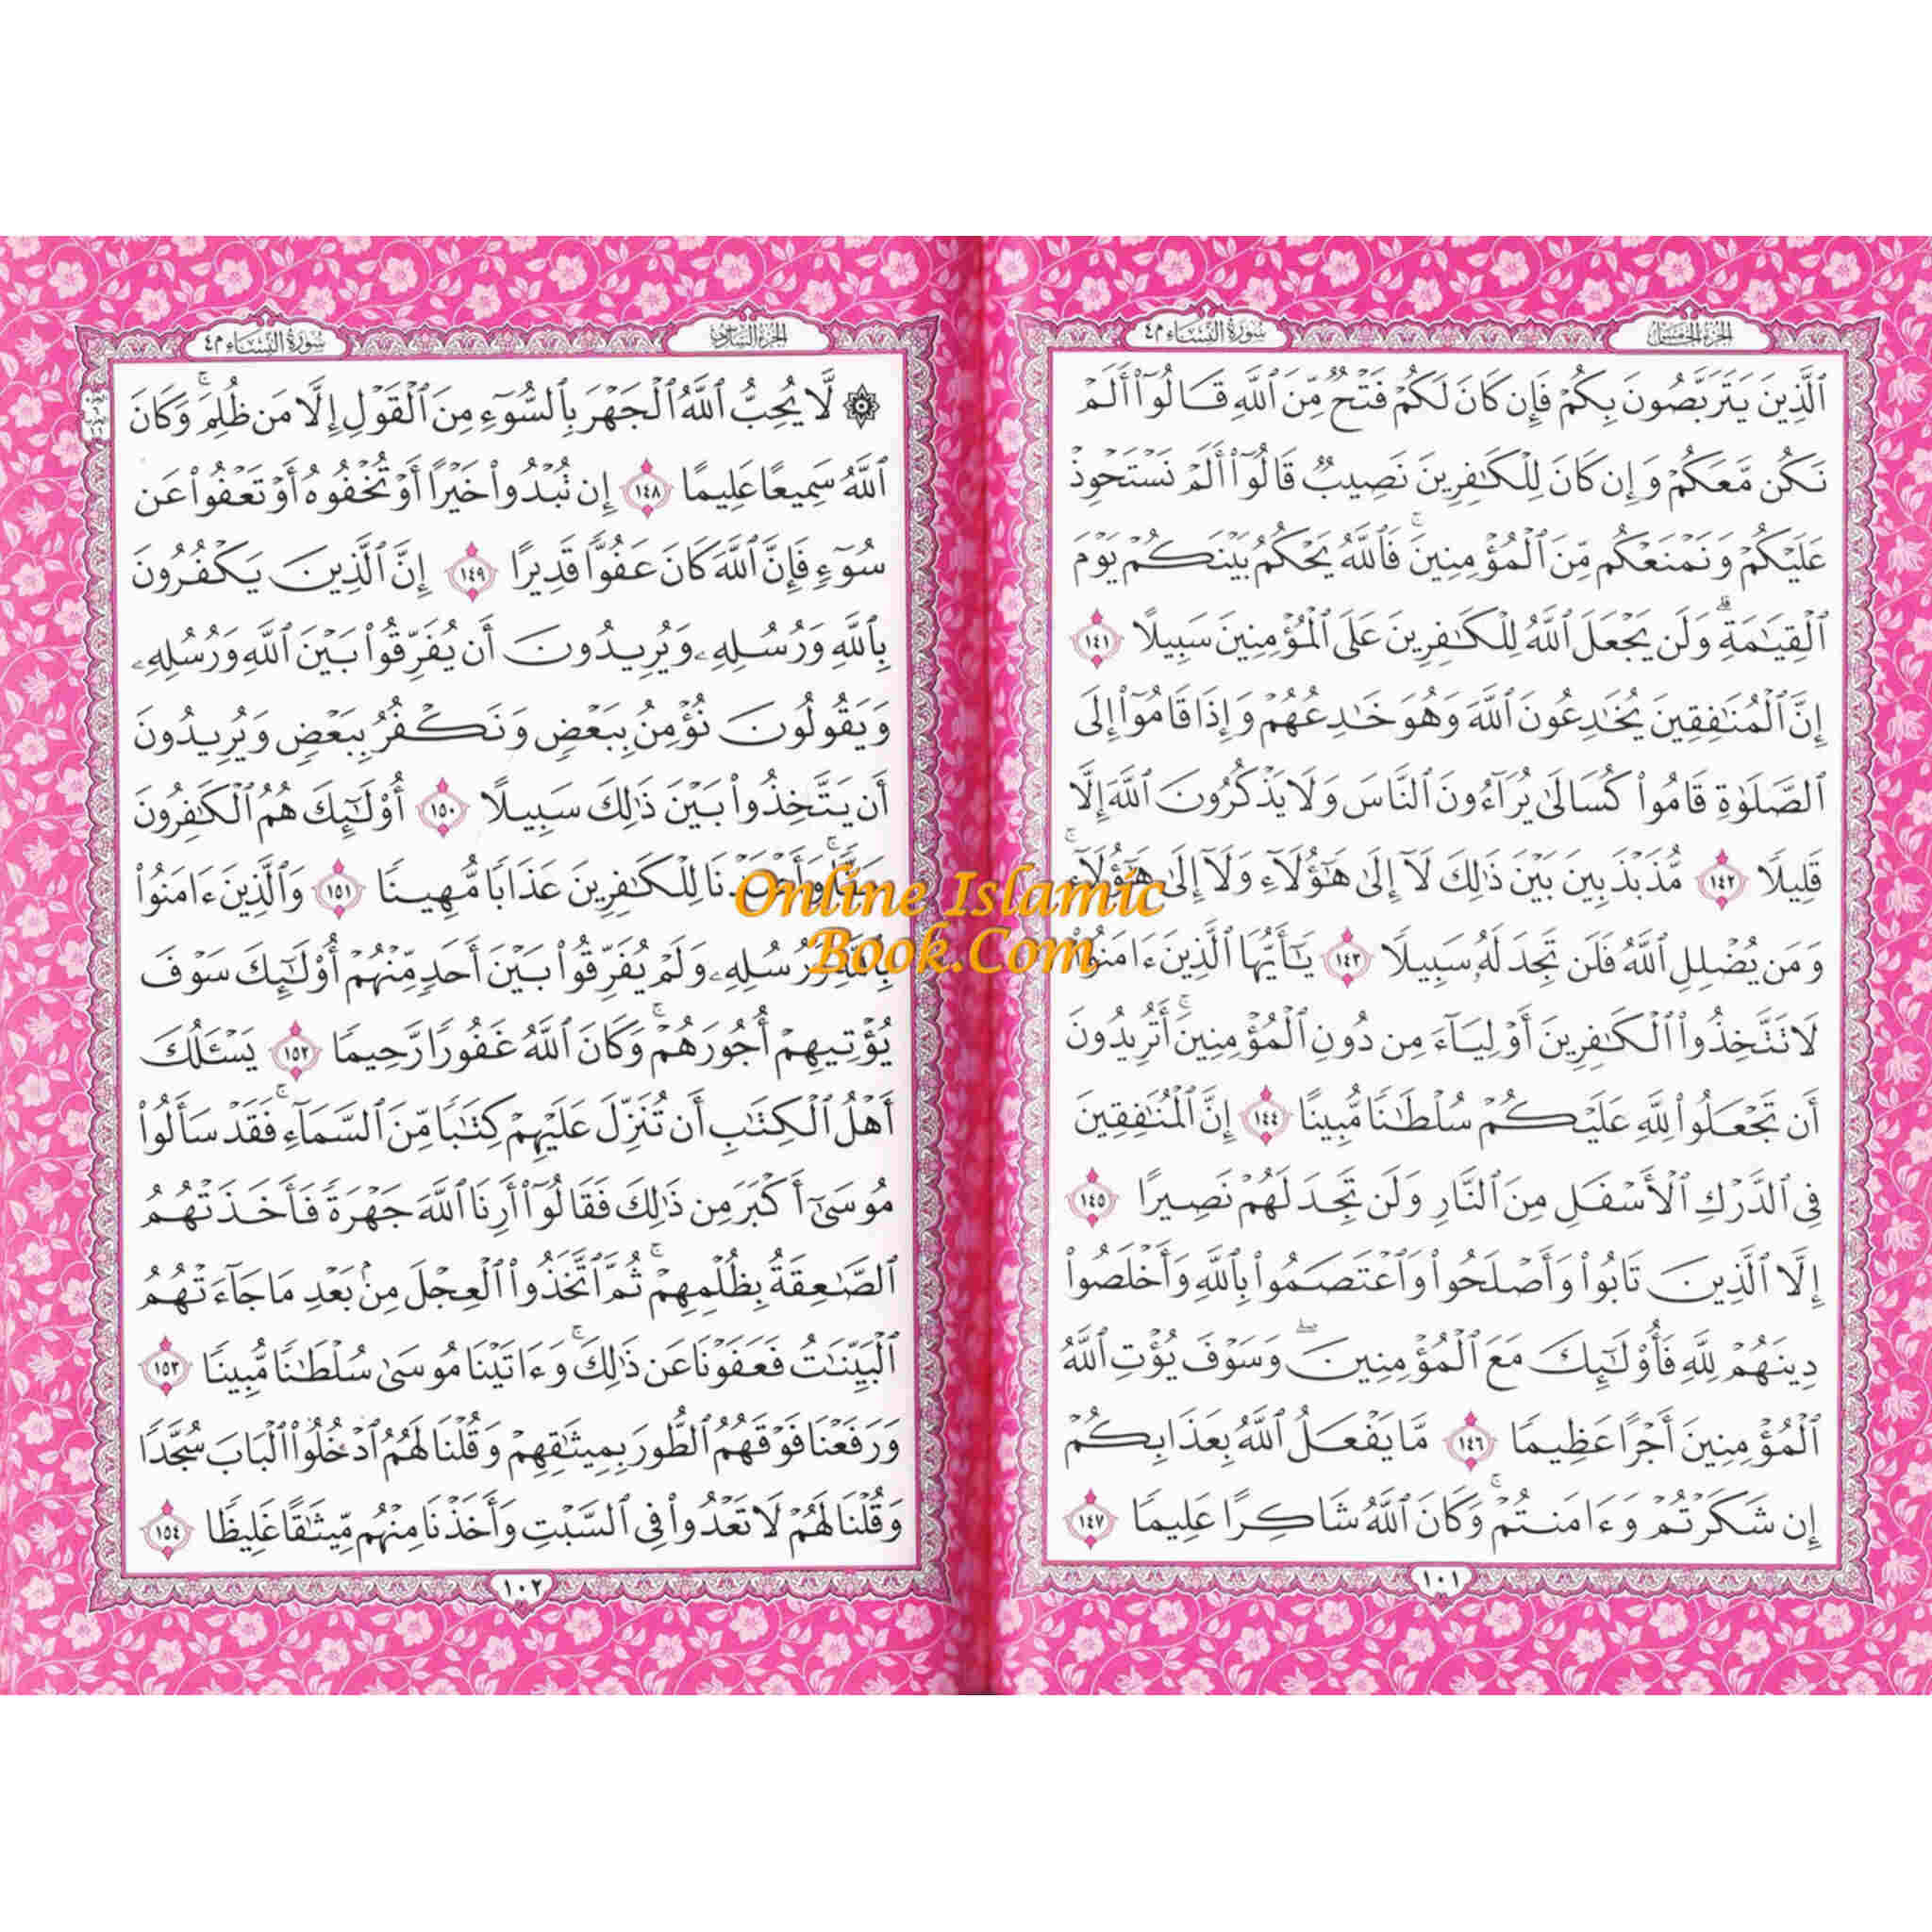 الجزء الخامس
سورة النساء ٤
ٱلَّذِينَ يَتَرَبَّصُونَ بِكُمْ فَإِن كَانَ لَكُمْ فَتْحٌ مِّنَ ٱللَّهِ قَالُوٓا۟ أَلَمْ
نَكُن مَّعَكُمْ وَإِن كَانَ لِلْكَـٰفِرِينَ نَصِيبٌ قَالُوٓا۟ أَلَمْ نَسْتَحْوِذْ
عَلَيْكُمْ وَنَمْنَعْكُم مِّنَ ٱلْمُؤْمِنِينَ ۚ فَٱللَّهُ يَحْكُمُ بَيْنَكُمْ يَوْمَ
ٱلْقِيَـٰمَةِ ۗ وَلَن يَجْعَلَ ٱللَّهُ لِلْكَـٰفِرِينَ عَلَى ٱلْمُؤْمِنِينَ سَبِيلًا ١٤١
إِنَّ ٱلْمُنَـٰفِقِينَ يُخَـٰدِعُونَ ٱللَّهَ وَهُوَ خَـٰدِعُهُمْ وَإِذَا قَامُوٓا۟ إِلَى
ٱلصَّلَوٰةِ قَامُوا۟ كُسَالَىٰ يُرَآءُونَ ٱلنَّاسَ وَلَا يَذْكُرُونَ ٱللَّهَ إِلَّا
قَلِيلًا ١٤٢ مُّذَبْذَبِينَ بَيْنَ ذَٰلِكَ لَآ إِلَىٰ هَـٰٓؤُلَآءِ وَلَآ إِلَىٰ هَـٰٓؤُلَآءِ ۚ
وَمَن يُضْلِلِ ٱللَّهُ فَلَن تَجِدَ لَهُۥ سَبِيلًا ١٤٣ يَـٰٓأَيُّهَا ٱلَّذِينَ ءَامَنُوا۟
لَا تَتَّخِذُوا۟ ٱلْكَـٰفِرِينَ أَوْلِيَآءَ مِن دُونِ ٱلْمُؤْمِنِينَ ۚ أَتُرِيدُونَ
أَن تَجْعَلُوا۟ لِلَّهِ عَلَيْكُمْ سُلْطَـٰنًا مُّبِينًا ١٤٤ إِنَّ ٱلْمُنَـٰفِقِينَ
فِى ٱلدَّرْكِ ٱلْأَسْفَلِ مِنَ ٱلنَّارِ وَلَن تَجِدَ لَهُمْ نَصِيرًا ١٤٥
إِلَّا ٱلَّذِينَ تَابُوا۟ وَأَصْلَحُوا۟ وَٱعْتَصَمُوا۟ بِٱللَّهِ وَأَخْلَصُوا۟
دِينَهُمْ لِلَّهِ فَأُو۟لَـٰٓئِكَ مَعَ ٱلْمُؤْمِنِينَ ۖ وَسَوْفَ يُؤْتِ ٱللَّهُ
ٱلْمُؤْمِنِينَ أَجْرًا عَظِيمًا ١٤٦ مَّا يَفْعَلُ ٱللَّهُ بِعَذَابِكُمْ
إِن شَكَرْتُمْ وَءَامَنتُمْ ۚ وَكَانَ ٱللَّهُ شَاكِرًا عَلِيمًا ١٤٧
١٠١
الجزء السادس
سورة النساء ٤
۞ لَّا يُحِبُّ ٱللَّهُ ٱلْجَهْرَ بِٱلسُّوٓءِ مِنَ ٱلْقَوْلِ إِلَّا مَن ظُلِمَ ۚ وَكَانَ
ٱللَّهُ سَمِيعًا عَلِيمًا ١٤٨ إِن تُبْدُوا۟ خَيْرًا أَوْ تُخْفُوهُ أَوْ تَعْفُوا۟ عَن
سُوٓءٍ فَإِنَّ ٱللَّهَ كَانَ عَفُوًّا قَدِيرًا ١٤٩ إِنَّ ٱلَّذِينَ يَكْفُرُونَ
بِٱللَّهِ وَرُسُلِهِۦ وَيُرِيدُونَ أَن يُفَرِّقُوا۟ بَيْنَ ٱللَّهِ وَرُسُلِهِۦ
وَيَقُولُونَ نُؤْمِنُ بِبَعْضٍ وَنَكْفُرُ بِبَعْضٍ وَيُرِيدُونَ
أَن يَتَّخِذُوا۟ بَيْنَ ذَٰلِكَ سَبِيلًا ١٥٠ أُو۟لَـٰٓئِكَ هُمُ ٱلْكَـٰفِرُونَ
حَقًّا ۚ وَأَعْتَدْنَا لِلْكَـٰفِرِينَ عَذَابًا مُّهِينًا ١٥١ وَٱلَّذِينَ ءَامَنُوا۟
بِٱللَّهِ وَرُسُلِهِۦ وَلَمْ يُفَرِّقُوا۟ بَيْنَ أَحَدٍ مِّنْهُمْ أُو۟لَـٰٓئِكَ سَوْفَ
يُؤْتِيهِمْ أُجُورَهُمْ ۗ وَكَانَ ٱللَّهُ غَفُورًا رَّحِيمًا ١٥٢ يَسْـَٔلُكَ
أَهْلُ ٱلْكِتَـٰبِ أَن تُنَزِّلَ عَلَيْهِمْ كِتَـٰبًا مِّنَ ٱلسَّمَآءِ ۚ فَقَدْ سَأَلُوا۟
مُوسَىٰٓ أَكْبَرَ مِن ذَٰلِكَ فَقَالُوٓا۟ أَرِنَا ٱللَّهَ جَهْرَةً فَأَخَذَتْهُمُ
ٱلصَّـٰعِقَةُ بِظُلْمِهِمْ ۚ ثُمَّ ٱتَّخَذُوا۟ ٱلْعِجْلَ مِنۢ بَعْدِ مَا جَآءَتْهُمُ
ٱلْبَيِّنَـٰتُ فَعَفَوْنَا عَن ذَٰلِكَ ۚ وَءَاتَيْنَا مُوسَىٰ سُلْطَـٰنًا مُّبِينًا ١٥٣
وَرَفَعْنَا فَوْقَهُمُ ٱلطُّورَ بِمِيثَـٰقِهِمْ وَقُلْنَا لَهُمُ ٱدْخُلُوا۟ ٱلْبَابَ سُجَّدًا
وَقُلْنَا لَهُمْ لَا تَعْدُوا۟ فِى ٱلسَّبْتِ وَأَخَذْنَا مِنْهُم مِّيثَـٰقًا غَلِيظًا ١٥٤
١٠٢
Online Islamic
Book.Com